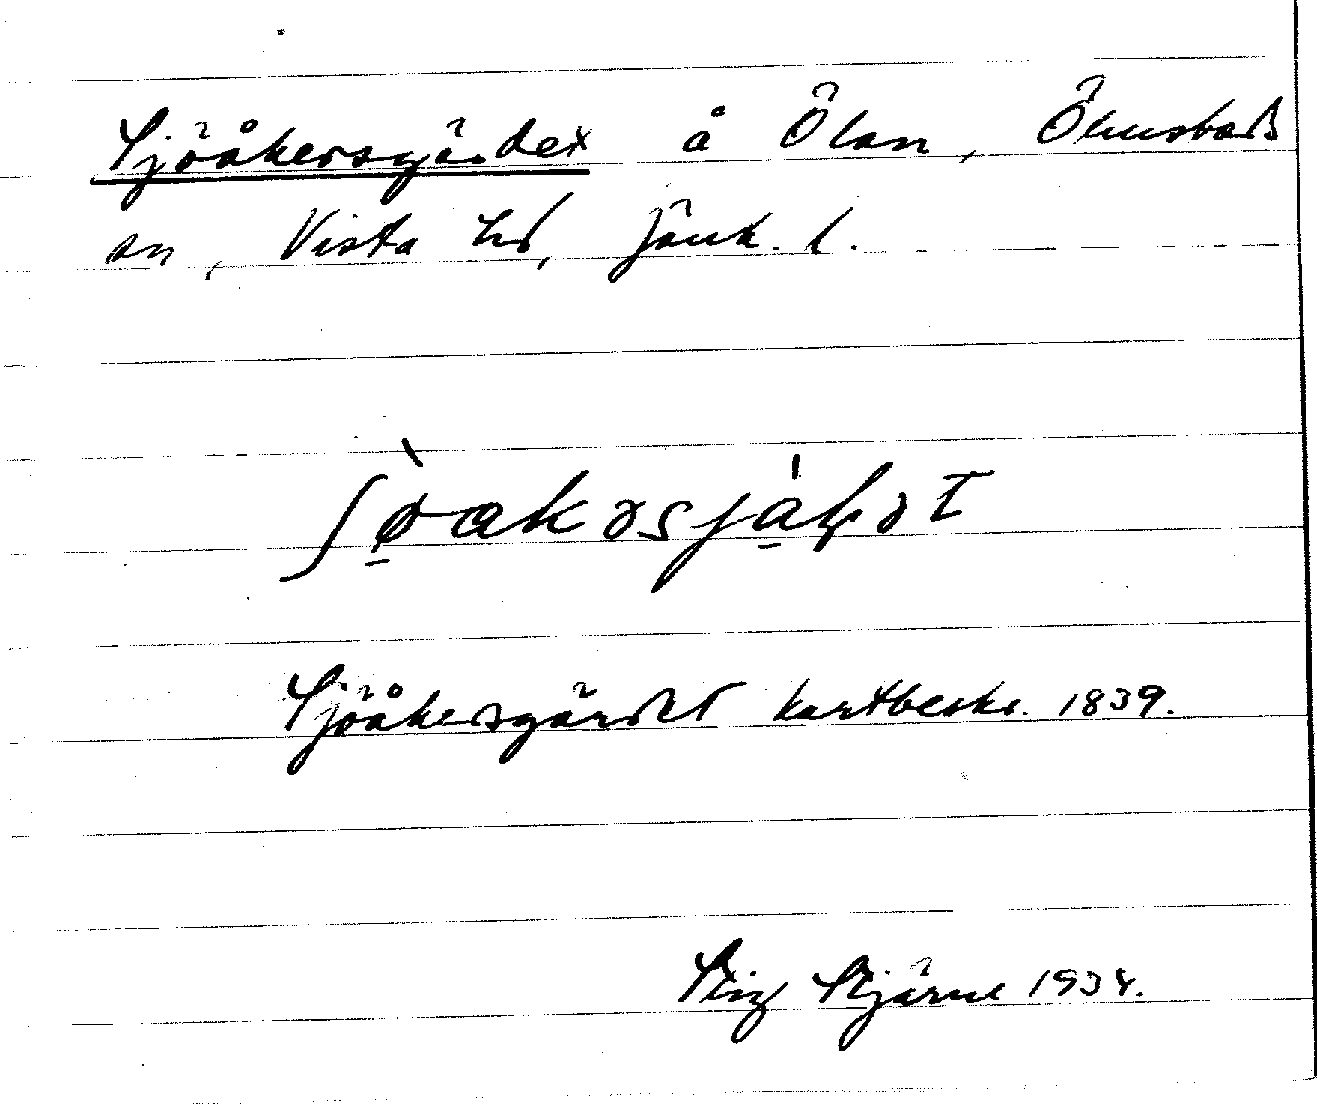 Sjöåkersgärdet å Ölan, Ölmstads
sn, Vista hd, Jönk. l.
Sjöåkersgärdet kartbeskr. 1839.
Stig Stjärne 1934.